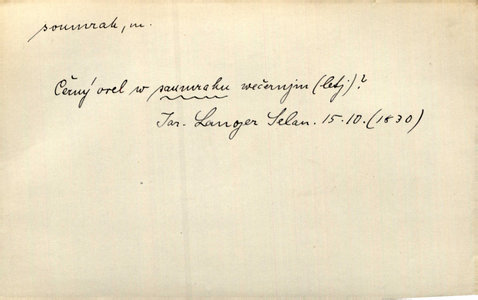 soumrak, m.
Černý orel w saumraku wečerním (letj)?
Jar. Langer Selan. 15.10. (1830)